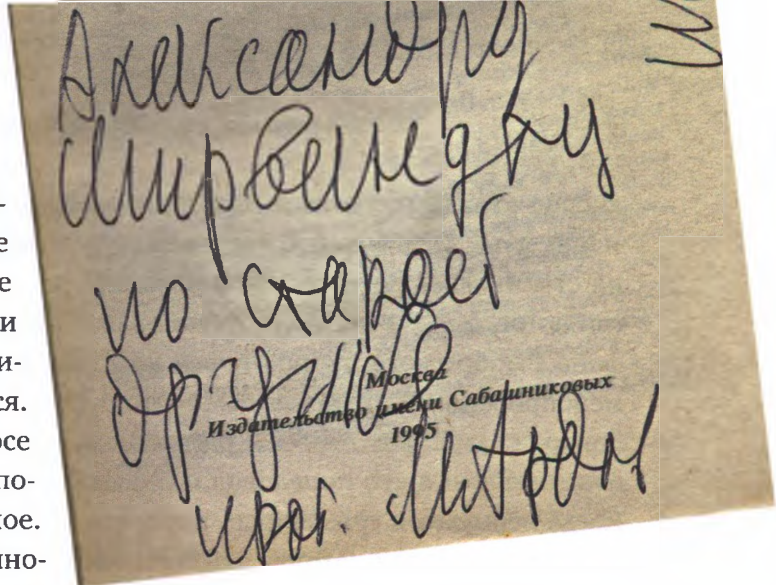 Александру
Ширвиндту
по старой
дружбе
Москва
Издательство имени Сабашниковых
1995
прот. М Ардов
-
е
е
и
и-
ся.
осе
по-
ое.
нно-